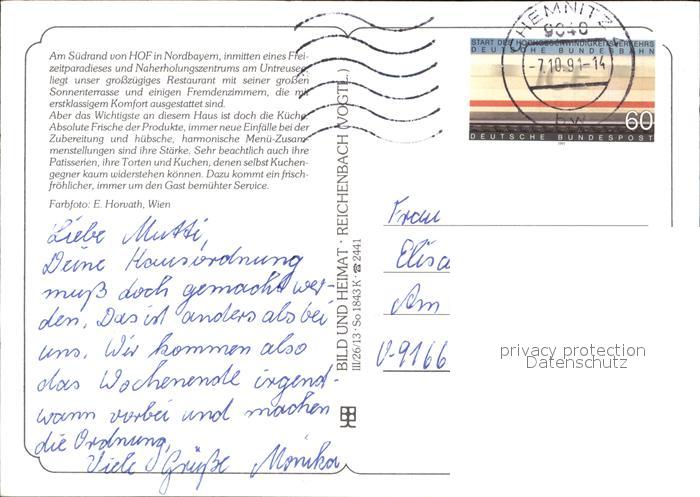 Am Südrand von HOF in Nordbayern, inmitten eines Frei-
zeitparadieses und Naherholungszentrums am Untreusee
liegt unser großzügiges Restaurant mit seiner großen
Sonnenterrasse und einigen Fremdenzimmern, die mit
erstklassigem Komfort ausgestattet sind.
Aber das Wichtigste an diesem Haus ist doch die Küche
Absolute Frische der Produkte, immer neue Einfälle bei der
Zubereitung und hübsche, harmonische Menü-Zusam-
menstellungen sind ihre Stärke. Sehr beachtlich auch ihre
Patisserien, ihre Torten und Kuchen, denen selbst Kuchen-
gegner kaum widerstehen können. Dazu kommt ein frisch-
fröhlicher, immer um den Gast bemühter Service.
Farbfoto: E. Horvath, Wien
Liebe Mutti,
Deine Hausordnung
muß doch gemacht wer-
den. Das ist anders als bei
uns. Wir kommen also
das Wochenende irgend-
wann vorbei und machen
die Ordnung.
Viele Grüße Monika
BILD UND HEIMAT · REICHENBACH (VOGTL.)
III/26/13 · So 1843 K · ☎ 2441
CHEMNITZ
9040
-7.10.91-14
bw
START DES HOCHGESCHWINDIGKEITSVERKEHRS
DEUTSCHE BUNDESBAHN
60
DEUTSCHE BUNDESPOST
1991
Frau
Elisa
Am
O-9166
privacy protection
Datenschutz